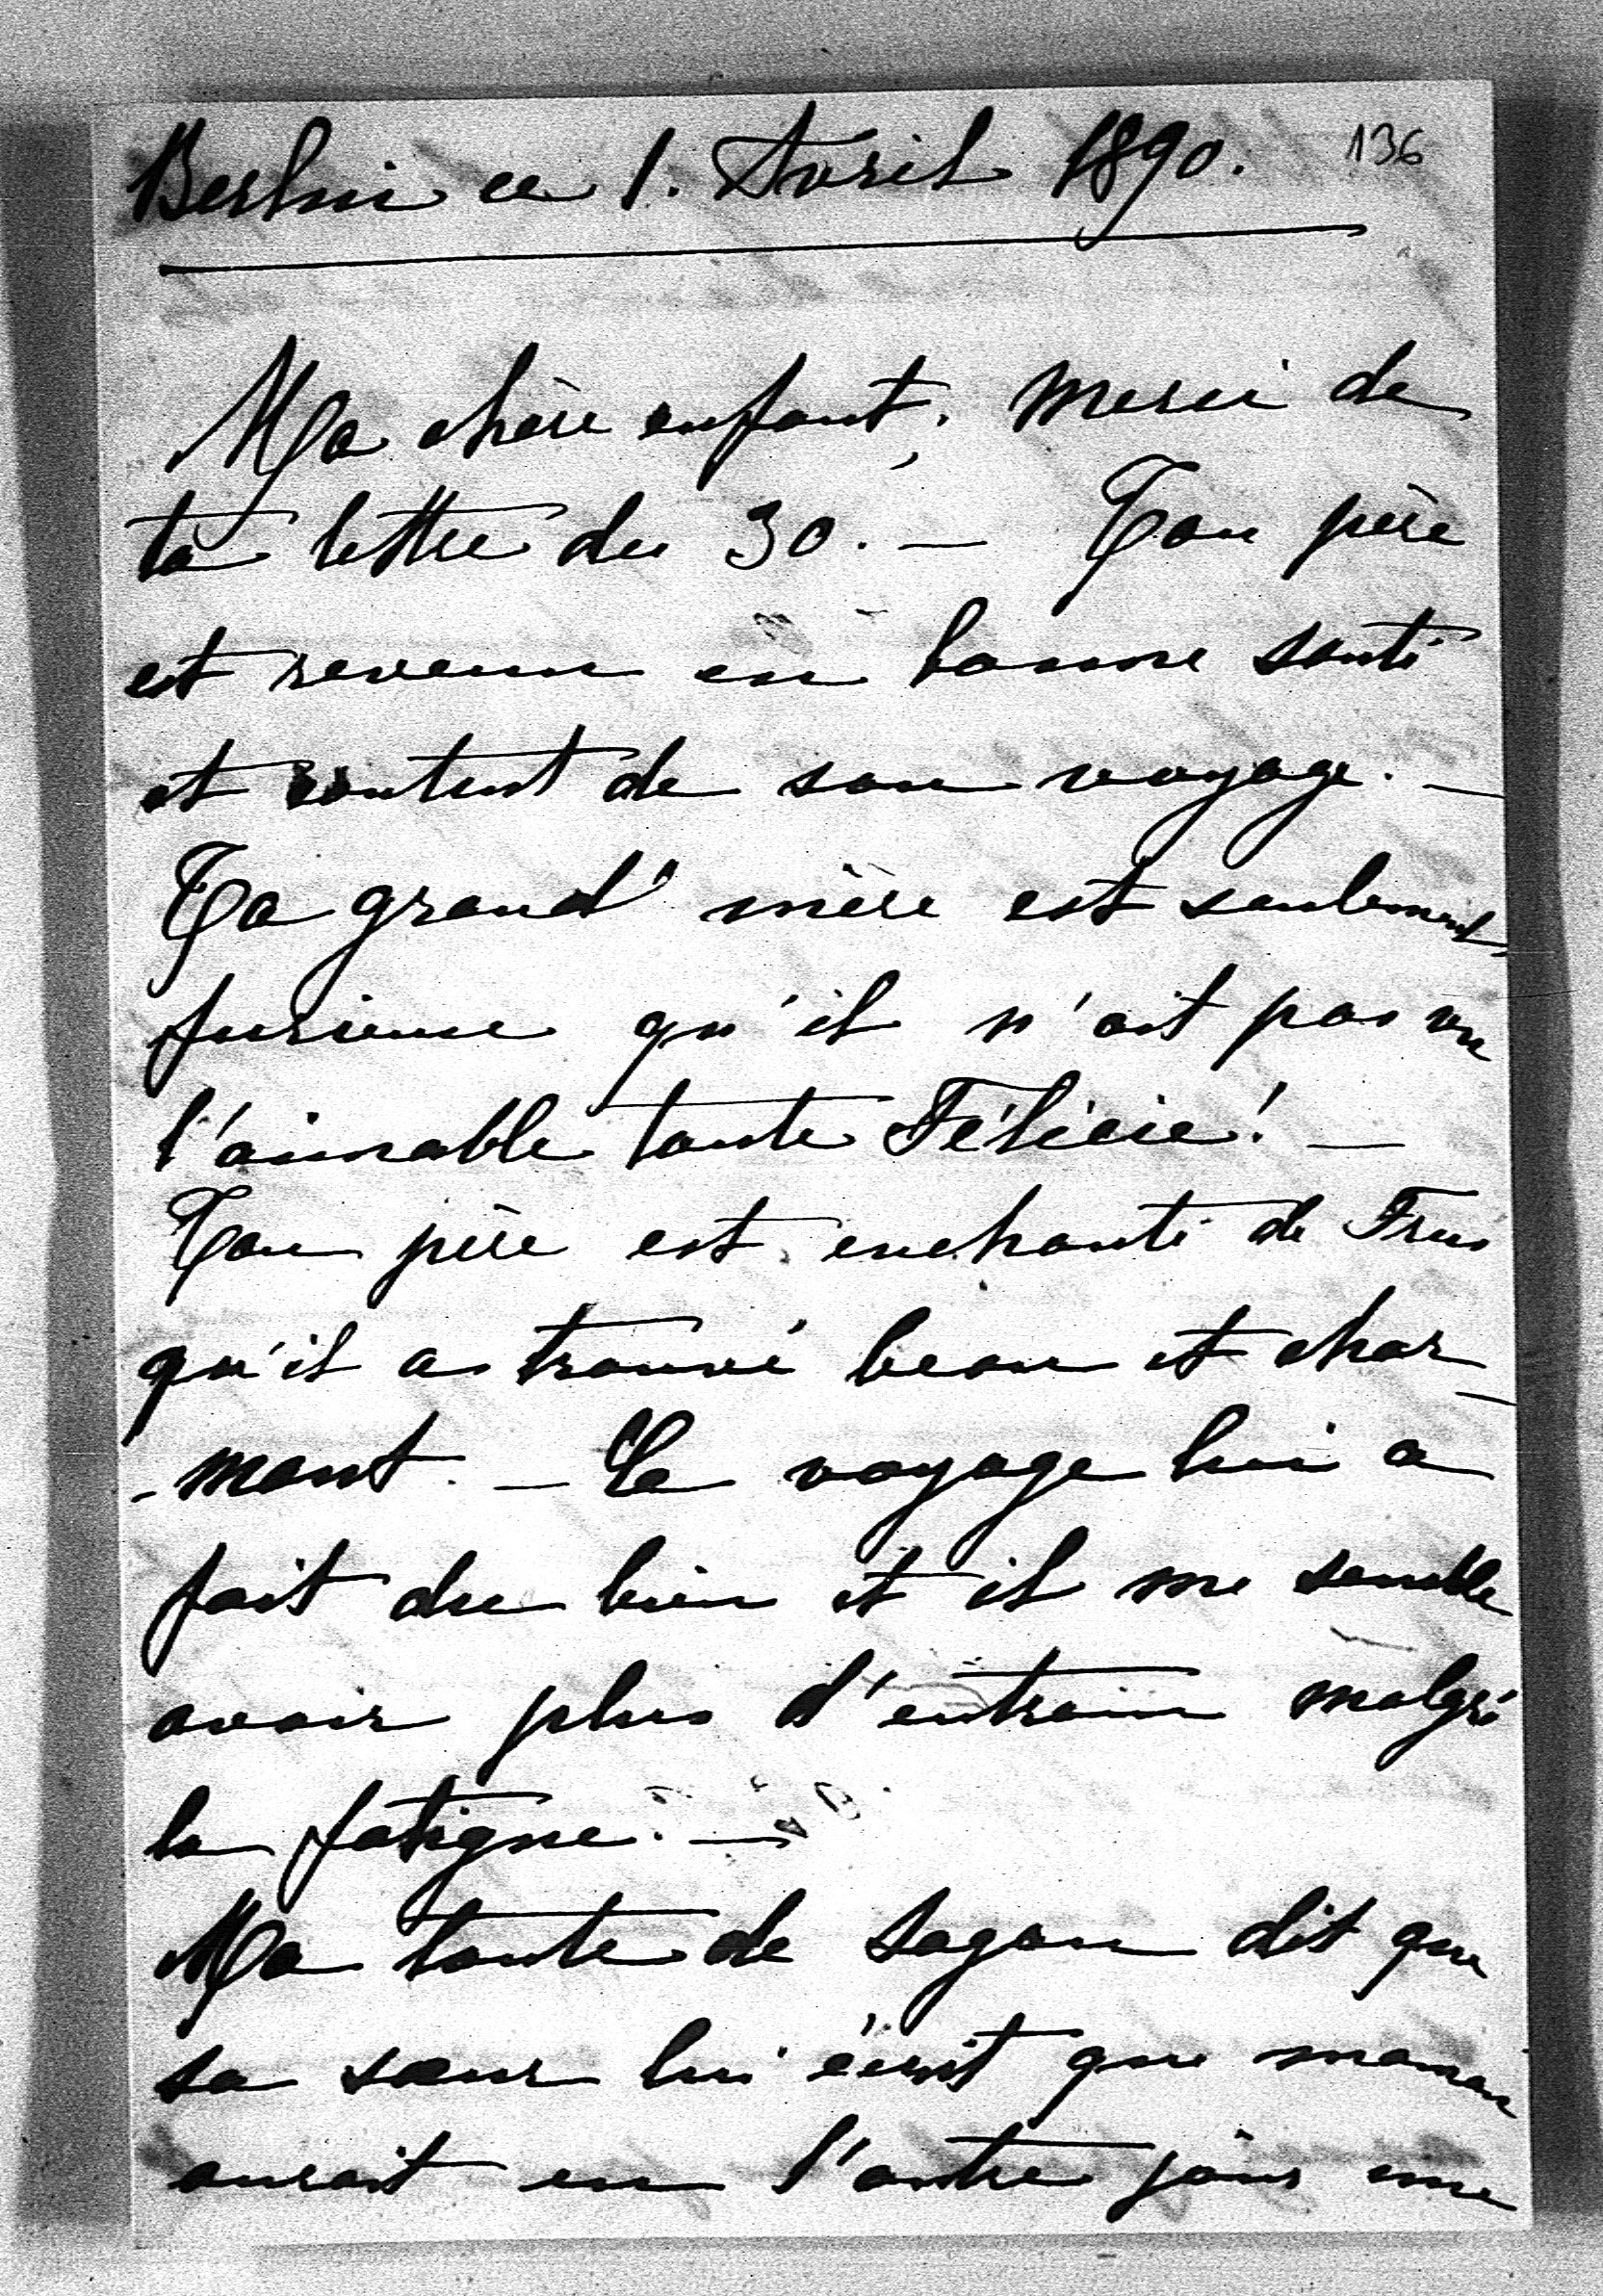 Berlin ce 1. Avril 1890. 136
Ma chère enfant, merci de
ta lettre du 30. — Ton père
est revenu en bonne santé
et content de son voyage. —
Ta grand' mère est seulement
furieuse qu'il n'ait pas vu
l'aimable tante Félicie! —
Ton père est enchanté de
qu'il a trouvé beau et char-
-mant. — Le voyage lui a
fait du bien et il me semble
avoir plus d'entrain malgré
la fatigue. —
Ma tante de Sagan dit que
sa sœur lui écrit que maman
aurait eu l'autre jour une